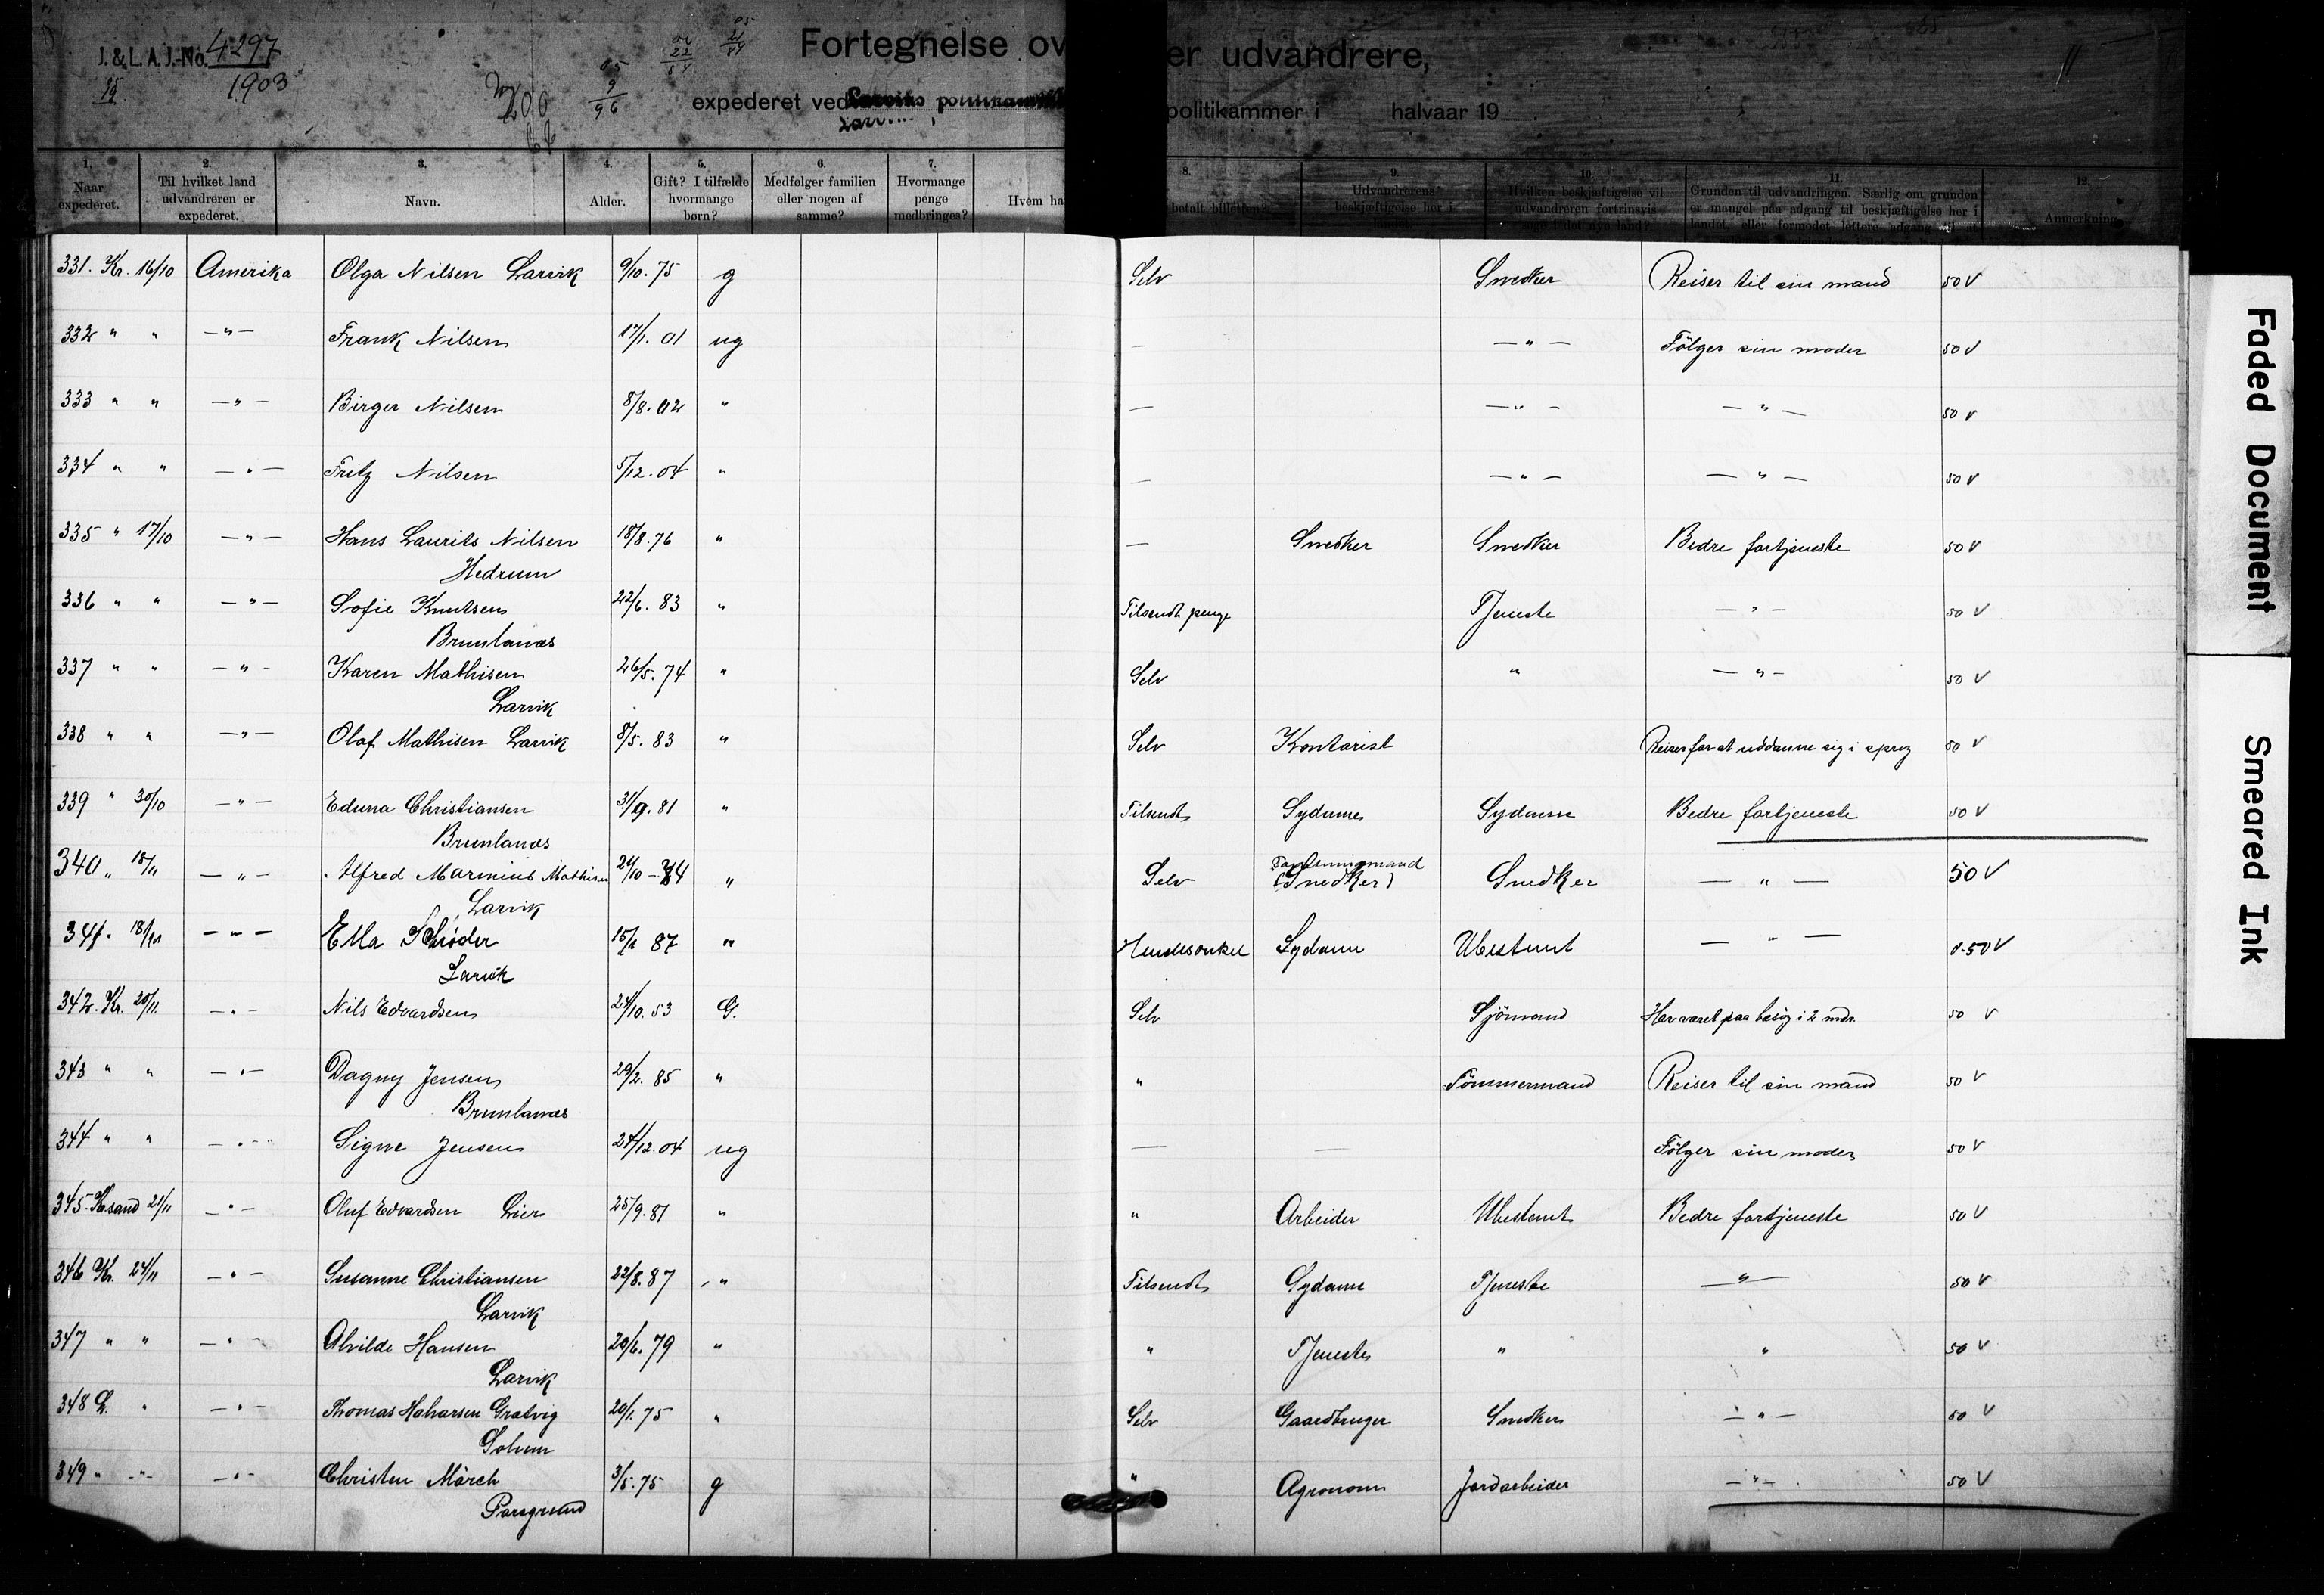 J. & L. A. J.-No. 4297
1903
Fortegnelse over udvandrere,
expederet ved Larviks politikammer i halvaar 19
11
1. Naar expederet.
2. Til hvilket land udvandreren er expederet.
3. Navn.
4. Alder.
5. Gift? I tilfælde hvormange børn?
6. Medfølger familien eller nogen af samme?
7. Hvormange penge medbringes?
8. Hvem ha betalt billetten?
9. Udvandrerens beskjæftigelse her i landet.
10. Hvilken beskjæftigelse vil udvandreren fortrinsvis søge i det nye land?
11. Grunden til udvandringen. Særlig om grunden er mangel paa adgang til beskjæftigelse her i landet, eller formodet lettere adgang
12. Anmerkning
331. Kr. 16/10 Amerika Olga Nilsen Larvik 9/10. 75 g Selv Snedker Reiser til sin mand 50 V
332 " " — " — Frank Nilsen 17/1. 01 ug — — " — Fölger sin moder 50 V
333 " " — " — Birger Nilsen 8/8. 02 " — — " — — " — 50 V
334 " " — " — Fritz Nilsen 5/12. 04 " — — " — — " — 50 V
335 " 17/10 — " — Hans Laurits Nilsen 18/8. 76 " — Snedker Snedker Bedre fortjeneste 50 V
Hedrum
336 " " — " — Sofie Knutsen 22/6. 83 " Tilsendt penge Tjeneste — " — 50 V
Brunlanæs
337 " " — " — Karen Mathisen 26/5. 74 " Selv " — " — 50 V
Larvik
338 " " — " — Olaf Mathisen Larvik 8/5. 83 " Selv Kontorist Reiser for at uddanne sig i sprog 50 V
339 " 30/10 — " — Edvina Christiansen 31/9. 81 " Tilsendt Sydame Sydame Bedre fortjeneste 50 V
Brunlanæs
340 " 15/11 — " — Alfred Marinius Mathisen 24/10 - 84 " Selv (Snedker) Snedker — " — 50 V
Larvik
341 " 18/11 — " — Ella Schrøder 15/1 87 " Hendes onkel Sydame Ubestemt — " — 0.50 V
Larvik
342. Kr. 20/11. — " — Nils Edvardsen 24/10. 53 G. Selv Sjömand Har været paa besög i 2 mdr. 50 V
343 " " — " — Dagny Jensen 29/2. 85 " " Tömmermand Reiser til sin mand 50 V
Brunlanæs
344 " " — " — Signe Jensen 24/12. 04 ug — — Fölger sin moder 50 V
345. Krsand 21/11 — " — Oluf Edvardsen Lier 25/9. 81 " " Arbeider Ubestemt Bedre fortjeneste 50 V
346 Kr. 24/11 — " — Susanne Christiansen 22/8. 87 " Tilsendt Sydame Tjeneste — " — 50 V
Larvik
347 " " — " — Alvilde Hansen 20/6. 79 " " Tjeneste " " 50 V
Larvik
348 L. " — " — Thomas Halvorsen 20/1. 75 " Selv Gaardbruger Snedker — " — 50 V
Solum
349 " " — " — Christen Mörch 3/5. 75 g " Agronom Jordarbeider — " — 50 V
Porsgrund
Faded Document
Smeared Ink